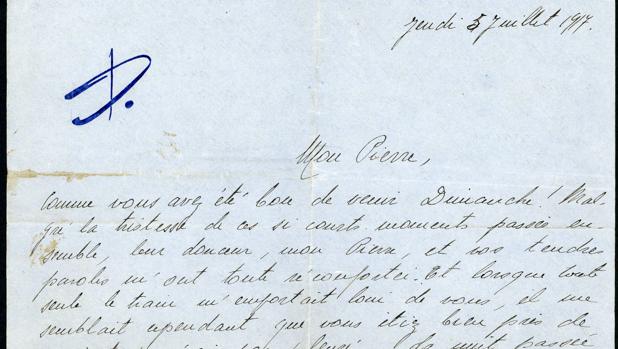 Jeudi 5 Juillet 1917.
D.
Mon Pierre,
Comme vous avez été bon de venir Dimanche! Mal-
gré la tristesse de ces si courts moments passés en-
semble, leur douceur, mon Pierre, et vos tendres
paroles m'ont toute réconfortée. Et lorsque toute
seule le train m'emportait loin de vous, il me
semblait cependant que vous étiez bien près de
la nuit passée